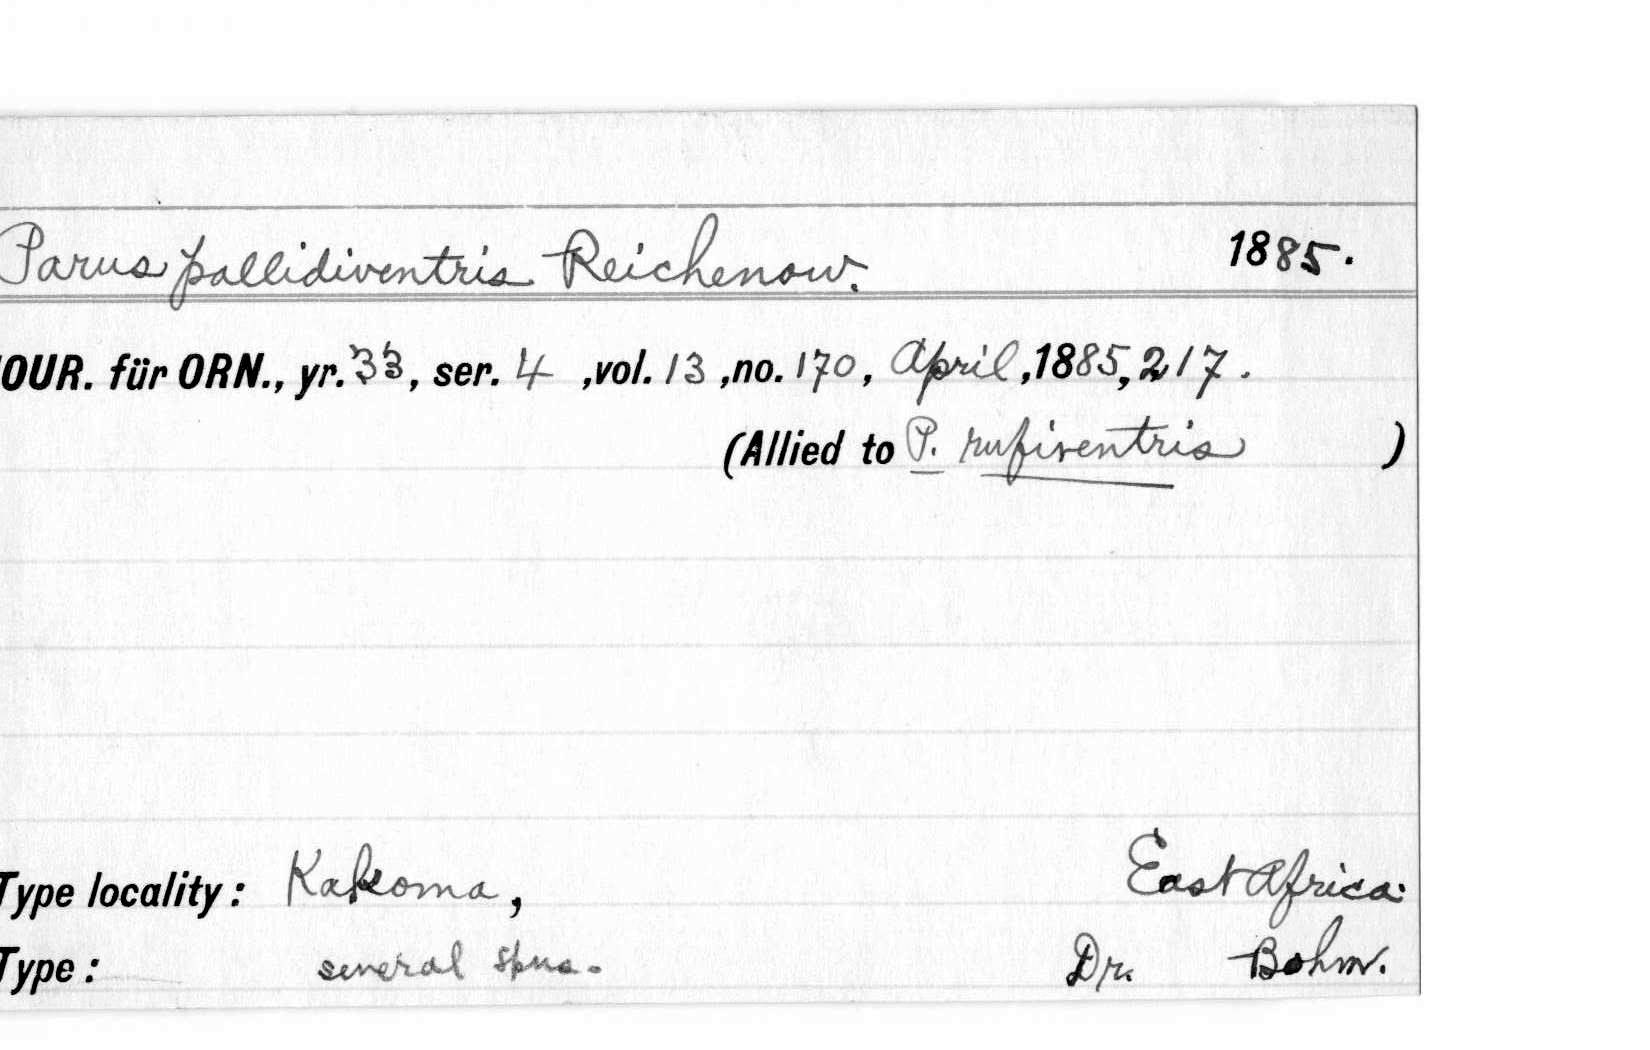 Parus pallidiventris Reichenow. 1885.
JOUR. für ORN., yr. 33, ser. 4 ,vol. 13 ,no. 170, April ,1885, 217.
(Allied to P. rufiventris )
Type locality: Kakoma, East Africa.
Type: several spns. Dr. Bohm.